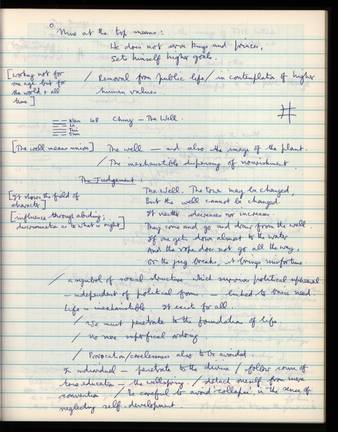 Nine at the top means:
He does not serve kings and princes,
Sets himself higher goals.
[working not for one age but for the world & all time]
/ Removal from public life / in contemplation of higher human values
Kan 48 Ching - The Well.
Sun
[The well means union] The well - and also the image of the plant.
/ The inexhaustible dispensing of nourishment
The Judgement:
The Well. The town may be changed,
But the well cannot be changed.
[It shows the field of character]
It neither decreases nor increases.
[influence through abiding; discrimination as to what is right]
They come and go and draw from the well.
If one gets down almost to the water
And the rope does not go all the way,
Or the jug breaks, it brings misfortune
/ a symbol of social structure which survives political upheaval
- independent of political forms - linked to basic need.
Life is inexhaustible. It exists for all.
/ We must penetrate to the foundation of life
/ no mere superficial ordering
/ carelessness also to be avoided.
In individual - penetrate to the divine / follow some of
true education - / detach oneself from mere
convention / be careful to avoid 'collapse' in the sense of
neglecting self-development.